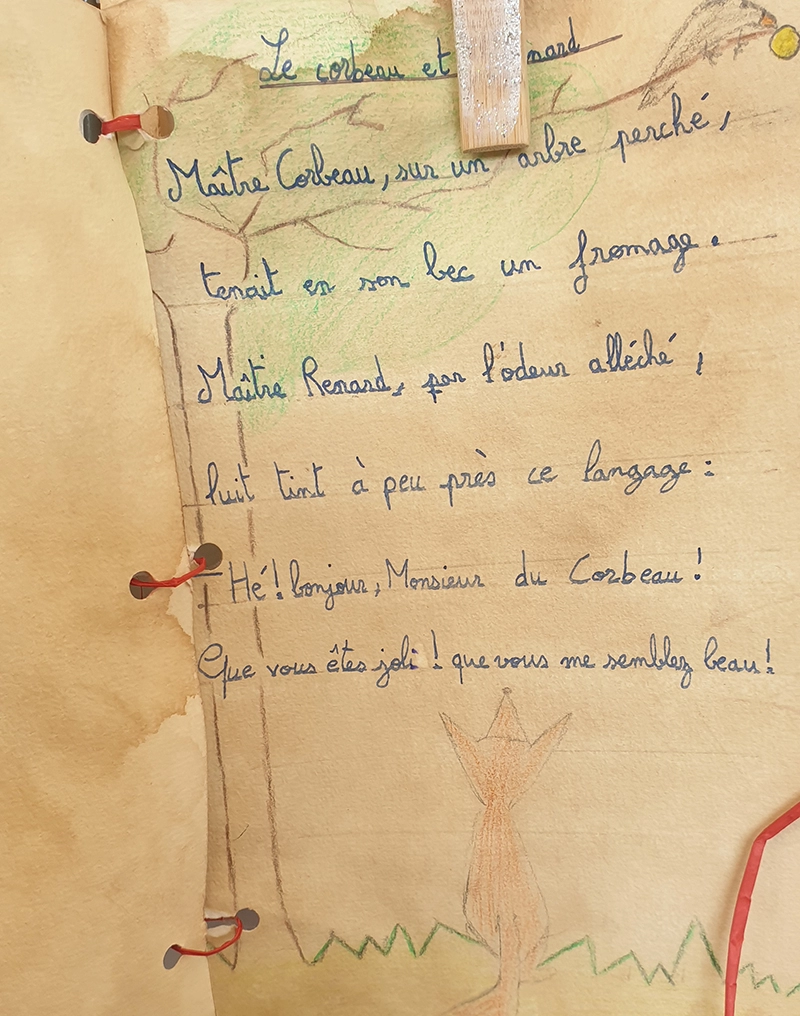 Le corbeau et nard
Maître Corbeau, sur un arbre perché,
tenait en son bec un fromage.
Maître Renard, par l'odeur alléché,
luit tint à peu près ce langage :
- Hé! bonjour, Monsieur du Corbeau!
Que vous êtes joli ! que vous me semblez beau!